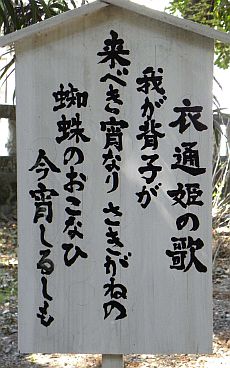 衣通姫の歌
我が背子が
来べき宵なり さゝがねの
蜘蛛のおこなひ
今宵しるしも